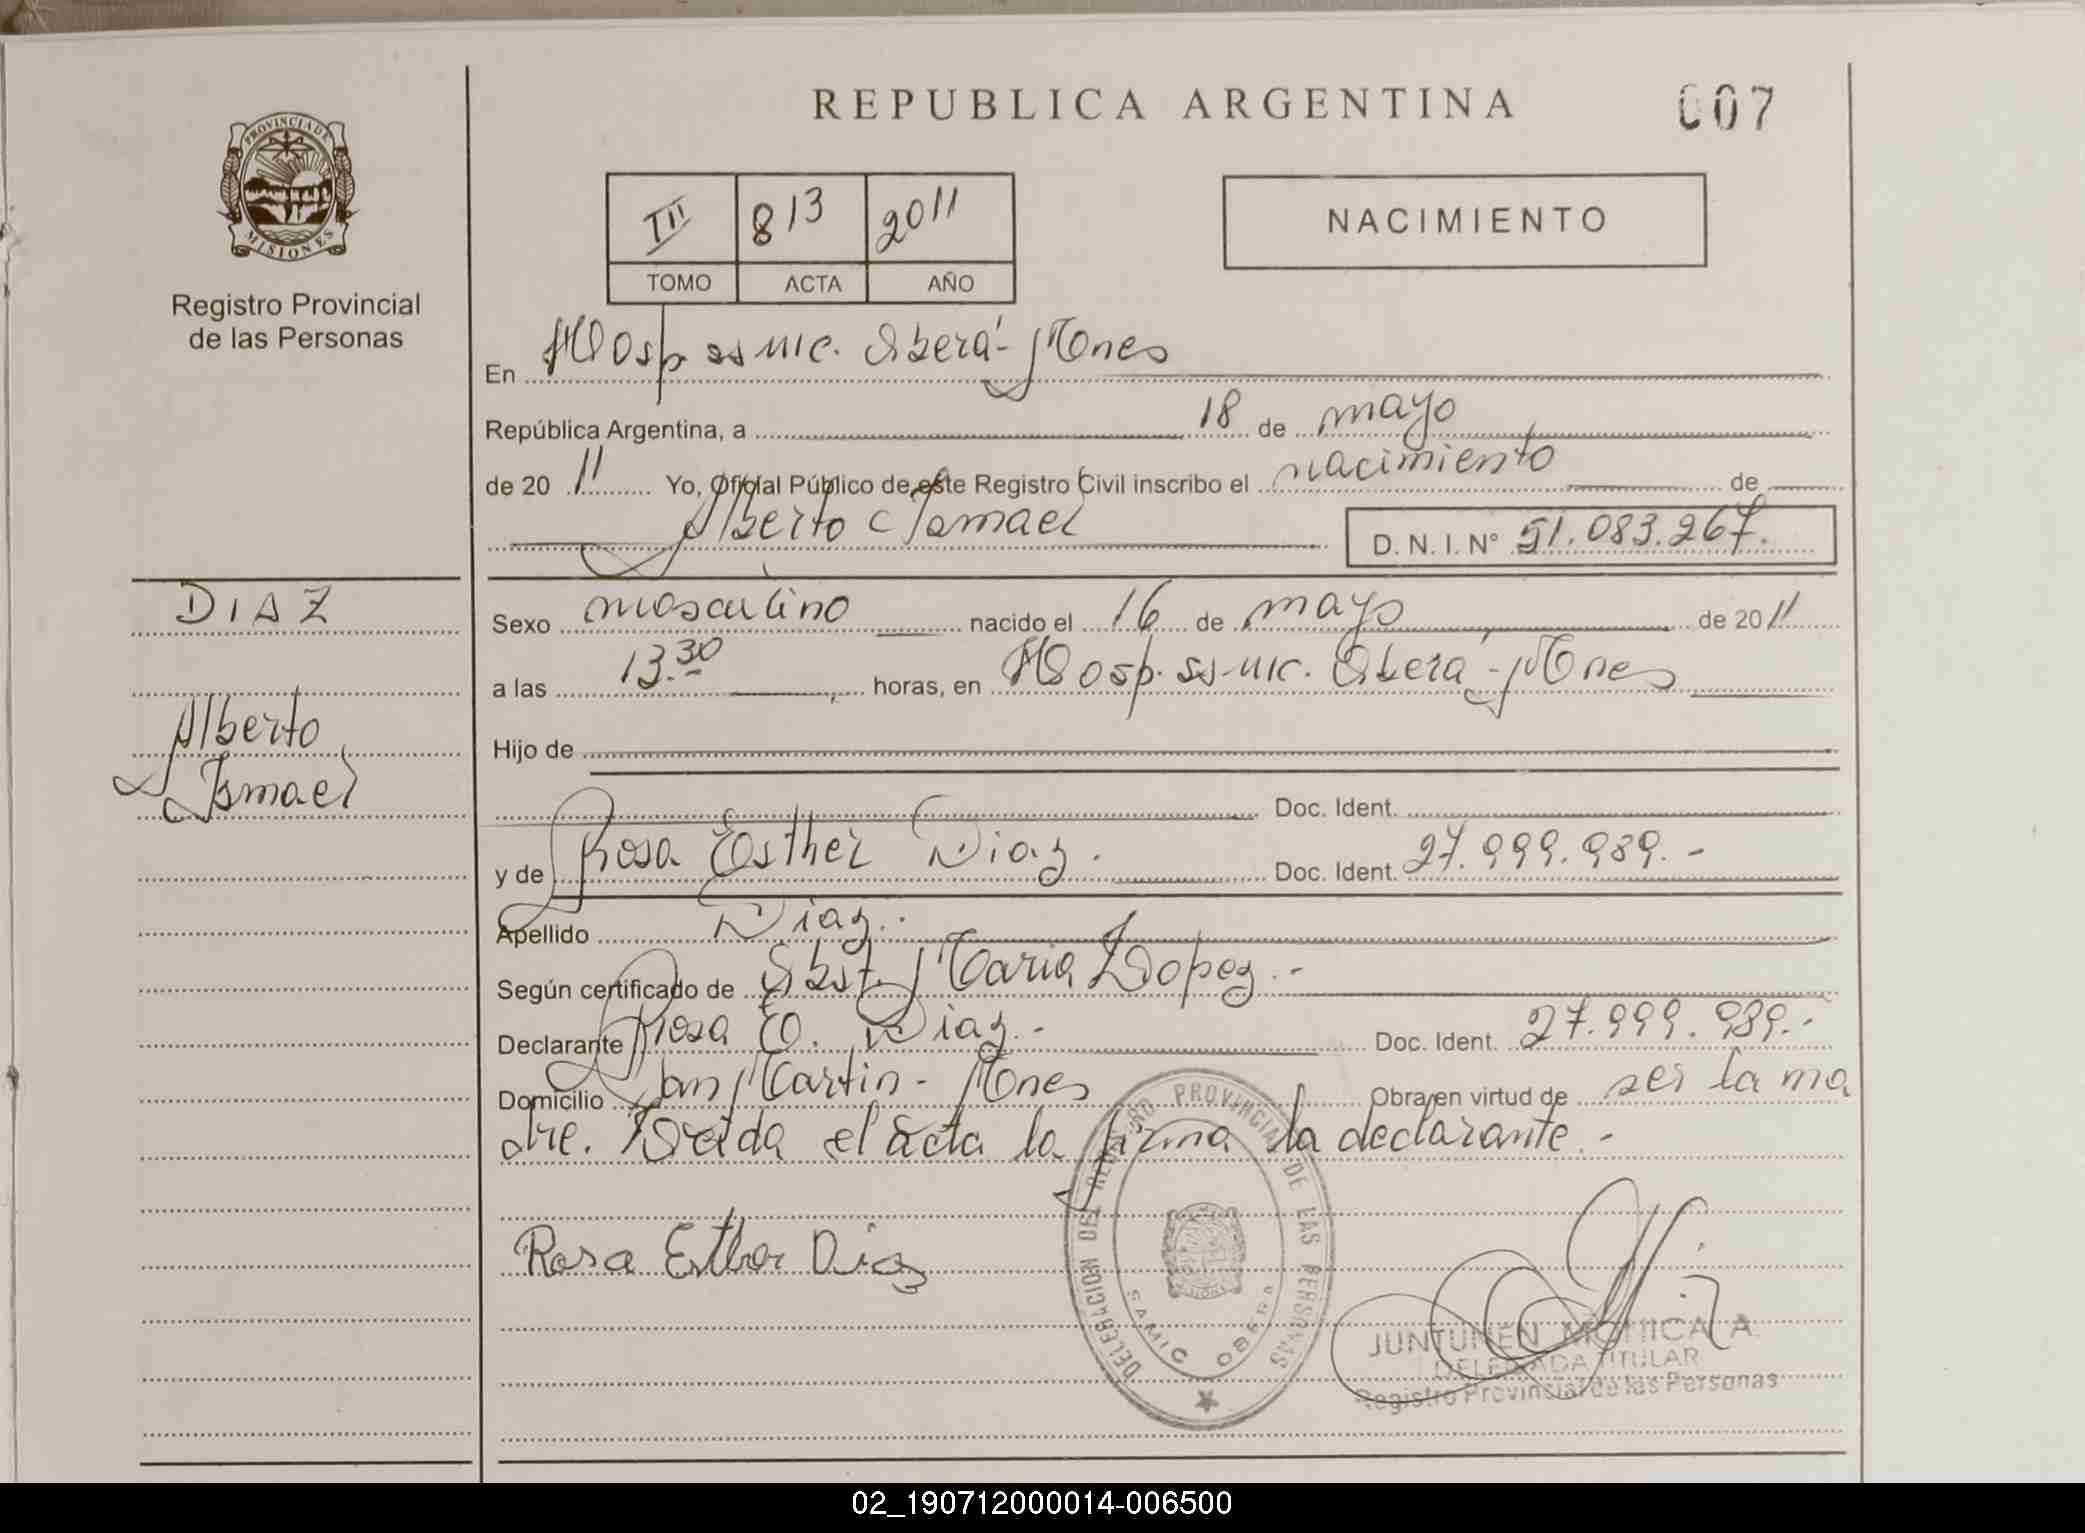 REPUBLICA ARGENTINA
007
PROVINCIA DE
MISIONES
Registro Provincial
de las Personas
III 813 2011
TOMO ACTA AÑO
NACIMIENTO
En Hosp. ss mic. Oberá - Mnes
República Argentina, a 18 de mayo
de 20 11 Yo, Oficial Público de este Registro Civil inscribo el nacimiento de
Alberto Ismael
D. N. I. N° 51.083.267.
DIAZ
Alberto
Ismael
Sexo masculino nacido el 16 de mayo de 20 11
a las 13.30 horas, en Hosp. ss mic. Oberá - Mnes
Hijo de
Doc. Ident.
y de Rosa Esther Diaz. Doc. Ident. 27.999.989.-
Apellido Diaz.
Según certificado de Obst. Maria Lopez.-
Declarante Rosa E. Diaz.- Doc. Ident. 27.999.989.-
Domicilio San Martin - Mnes Obra en virtud de ser la ma
dre. Leida el acta la firma la declarante.-
Rosa Esther Diaz
DELEGACION DEL REGISTRO PROVINCIAL DE LAS PERSONAS
SAMIC OBERA
JUNTUNEN MONICA A.
DELEGADA TITULAR
Registro Provincial de las Personas
02_190712000014-006500